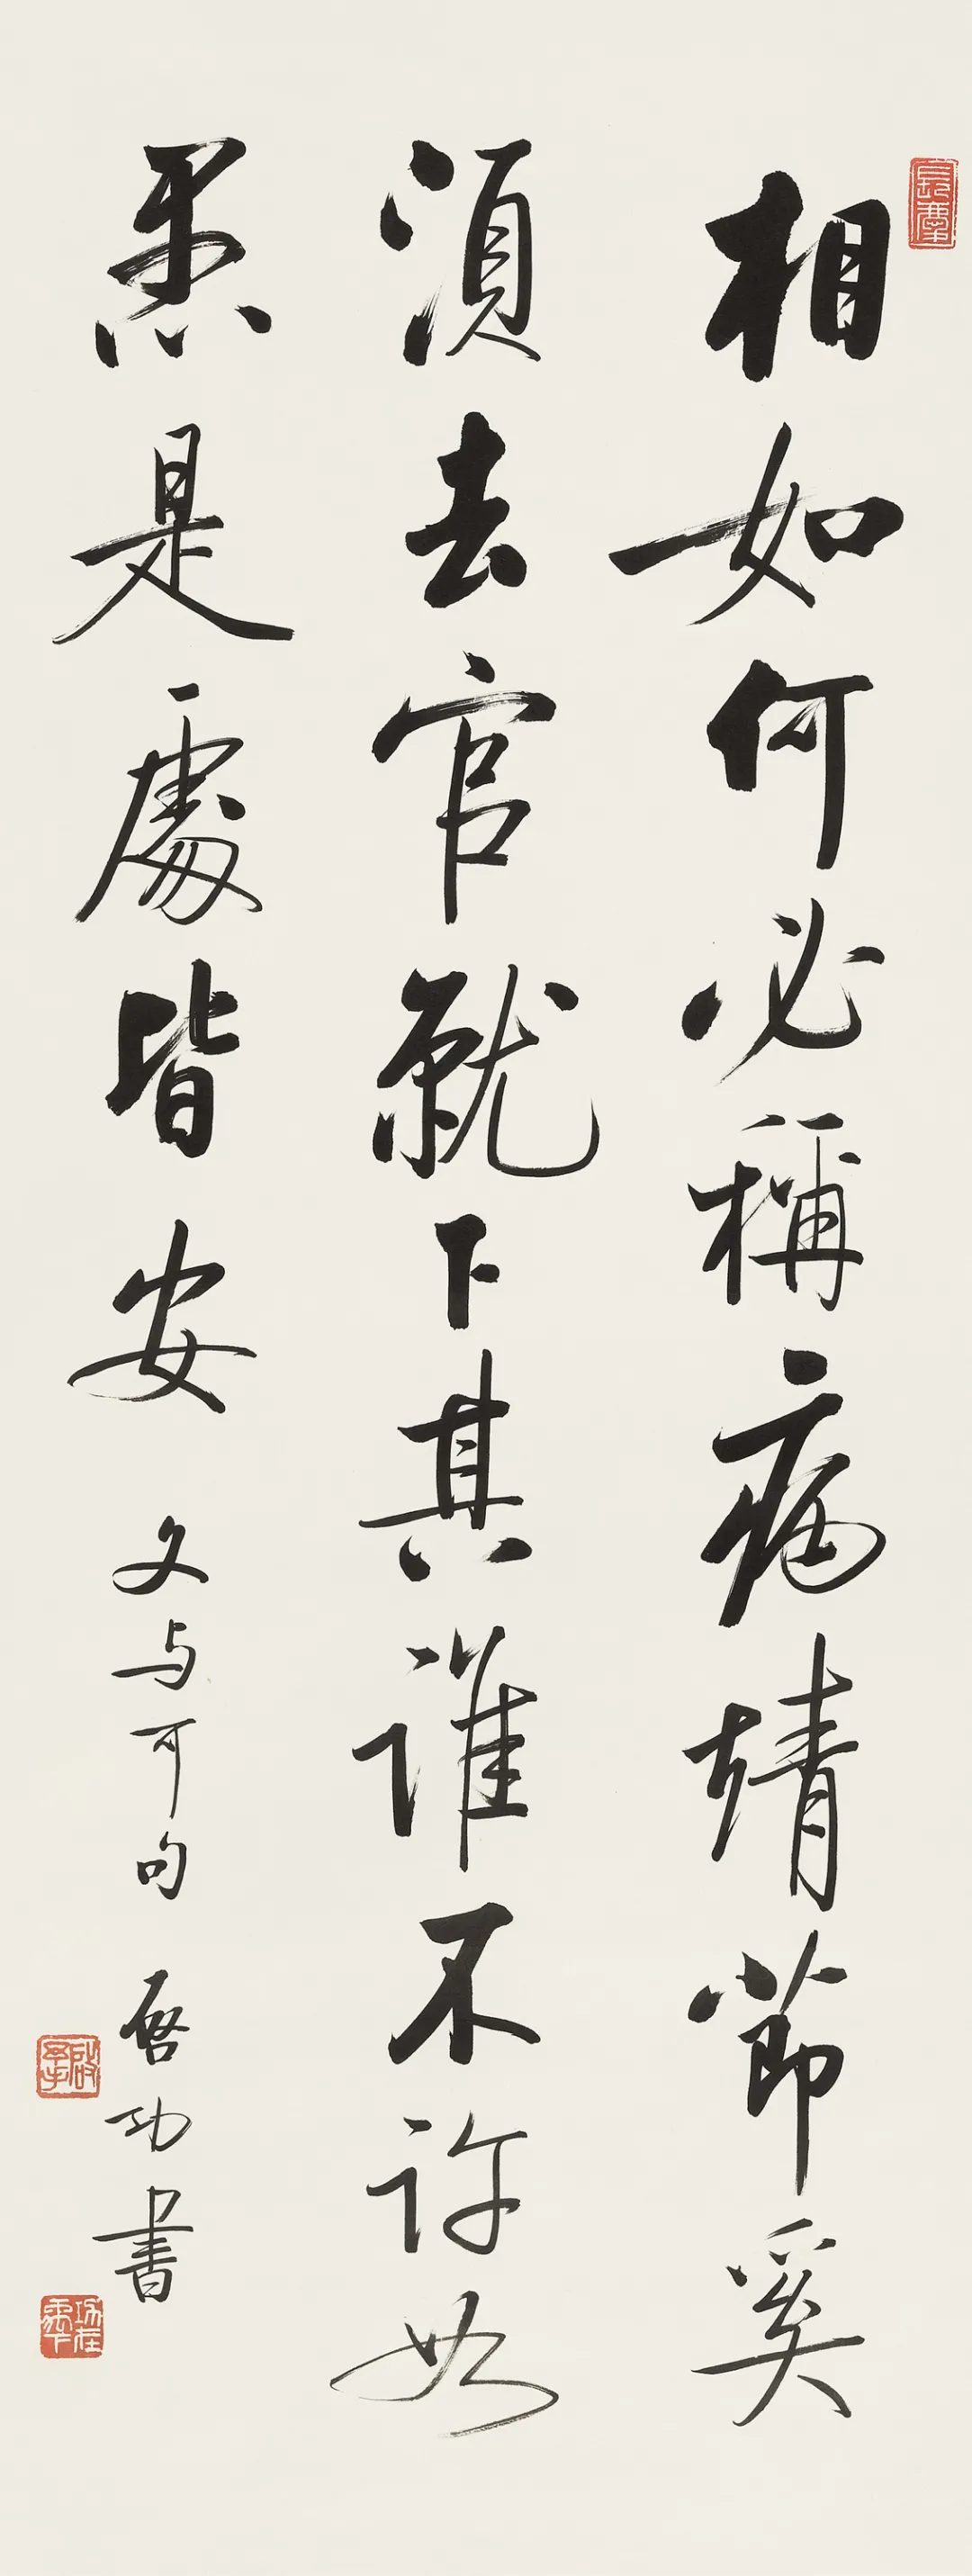 相如何必稱病靖節奚
須去官就下其誰不許如
愚是處皆安 文与可句 啓功書
功在禹下